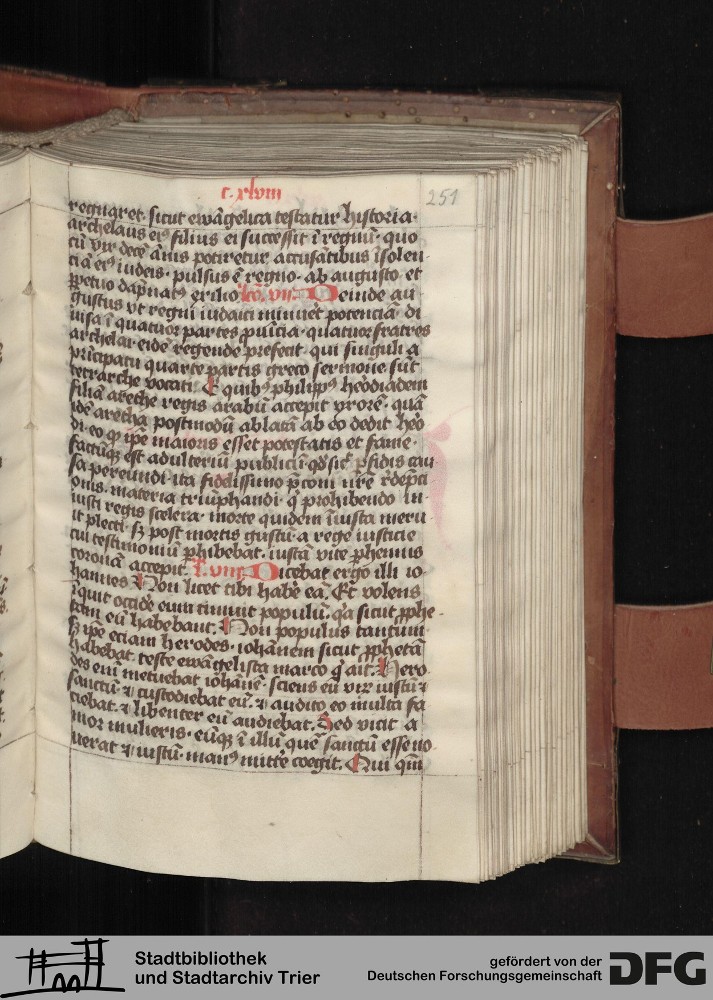 c. xlviii
251
regnaret. sicut ewãgelica testatur historia.
archelaus eiꝰ filius ei successit ĩ regnũ. quo
cũ vix decẽ ãnis potiretur accusãtibus ĩsolen
ciã eiꝰ iudeis. pulsus ẽ regno. ab augusto et
ꝑpetuo dãpnatꝰ exilio. lcõ. vii. Deinde au
gustus vt regni iudaici minuẽt potenciã. di
uisa ĩ quatuor partes ꝓuĩcia. quatuor fratres
archelai eidẽ regende prefecit. qui singuli a
prĩcipatu quarte partis greco sermone sũt
tetrarche vocati. E quibꝰ philippꝰ herodiadem
filiã areche regis arabũ accepit vxorẽ. quã
idẽ aretha postmodũ ablatã ab eo dedit hero
di. eo ꝙ ip̃e maioris esset potestatis et fame.
factũqꝫ est adulteriũ publicũ. ꝑfidis cau
sa pereundi. ita fidelissimo p̃coni nr̃e rẽdẽpti
onis. materia triũphandi. ꝙ prohibendo in
iusti regis scelera. morte quidem iniusta meru
it plecti. sꝫ post mortis gustũ. a rege iusticie
cui testimoniũ phibebat. iustã vite ꝑhennis
coronã accepit. l. viii. Dicebat ergo illi io
hannes Non licet tibi habẽ eã. Et volens
ĩquit occidẽ eum timuit populũ. qꝛ sicut ꝓphe
tam eũ habebant. Non populus tantum
sꝫ ip̃e eciam herodes. iohãnem sicut ꝓphetã
habebat. teste ewãgelista marco ꝗ ait. Hero
des eni metuebat iohãnẽ. sciens eũ virũ iustũ ⁊
sanctũ. ⁊ custodiebat eũ. ⁊ audito eo multa fa
ciebat. ⁊ libenter eũ audiebat. Sed vicit a
mor mulieris. eũqꝫ ĩ illũ quẽ sanctũ esse no
uerat ⁊ iustũ. manꝰ mittẽ coegit. Qui qm̃
Stadtbibliothek
und Stadtarchiv Trier
gefördert von der
Deutschen Forschungsgemeinschaft
DFG